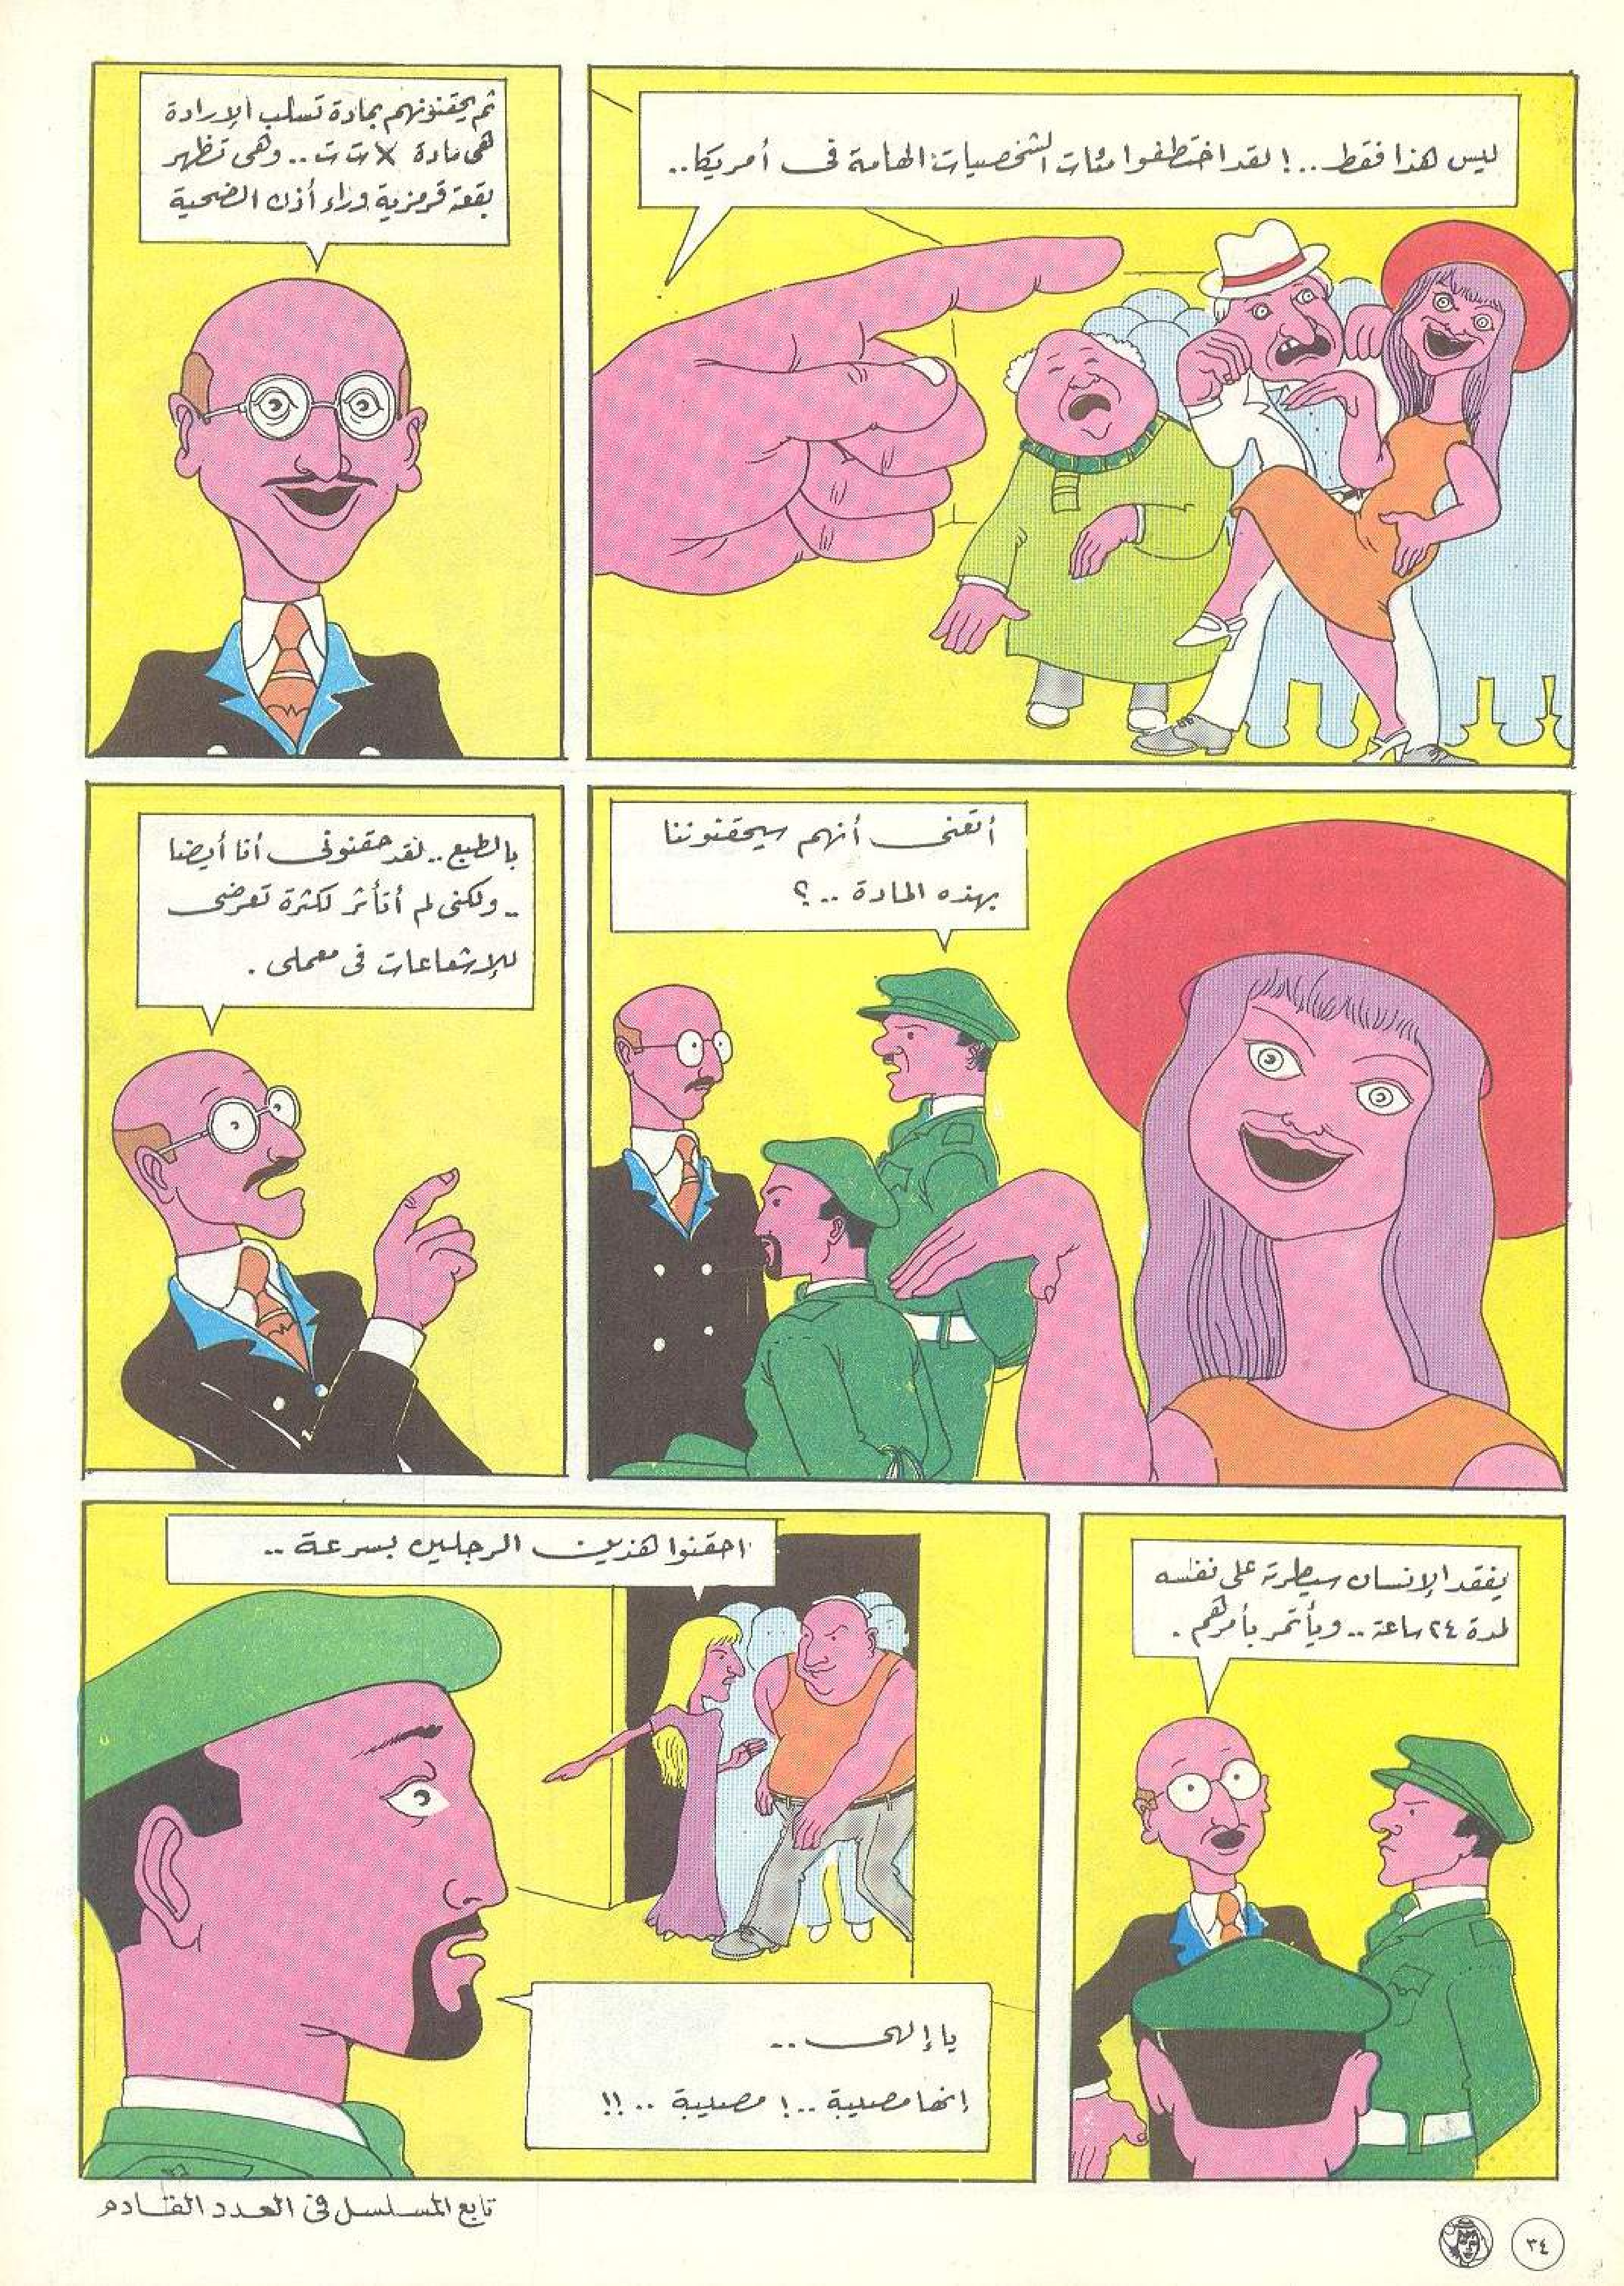 ليس هذا فقط..! لقد اختطفوا مئات الشخصيات الهامة فى أمريكا..
ثم يحقنونهم بمادة تسلب الإرادة
هى مادة X ت ت.. وهى تظهر
بقعة قرمزية وراء أذن الضحية
أتعنى أنهم سيحقنوننا
بهذه المادة ..؟
بالطبع.. لقد حقنونى أنا أيضا
.. ولكنى لم أتأثر لكثرة تعرضى
للإشعاعات فى معملى .
يفقد الإنسان سيطرته على نفسه
لمدة ٢٤ ساعة.. ويأتمر بأمرهم .
احقنوا هذين الرجلين بسرعة ..
يا إلهى ..
إنها مصيبة ..! مصيبة ..!!
تابع المسلسل فى العدد القادم
٣٤